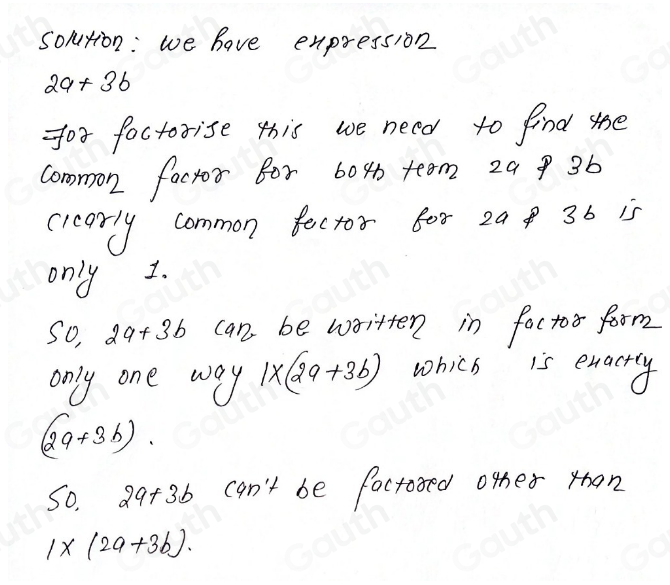 Solution: we have expression
2a + 3b
For factorise this we need to find the
common factor for both term 2a & 3b
clearly common factor for 2a & 3b is
only 1.
So, 2a+3b can be written in factor form
only one way 1×(2a+3b) which is exactly
(2a+3b).
So, 2a+3b can't be factored other than
1× (2a+3b).